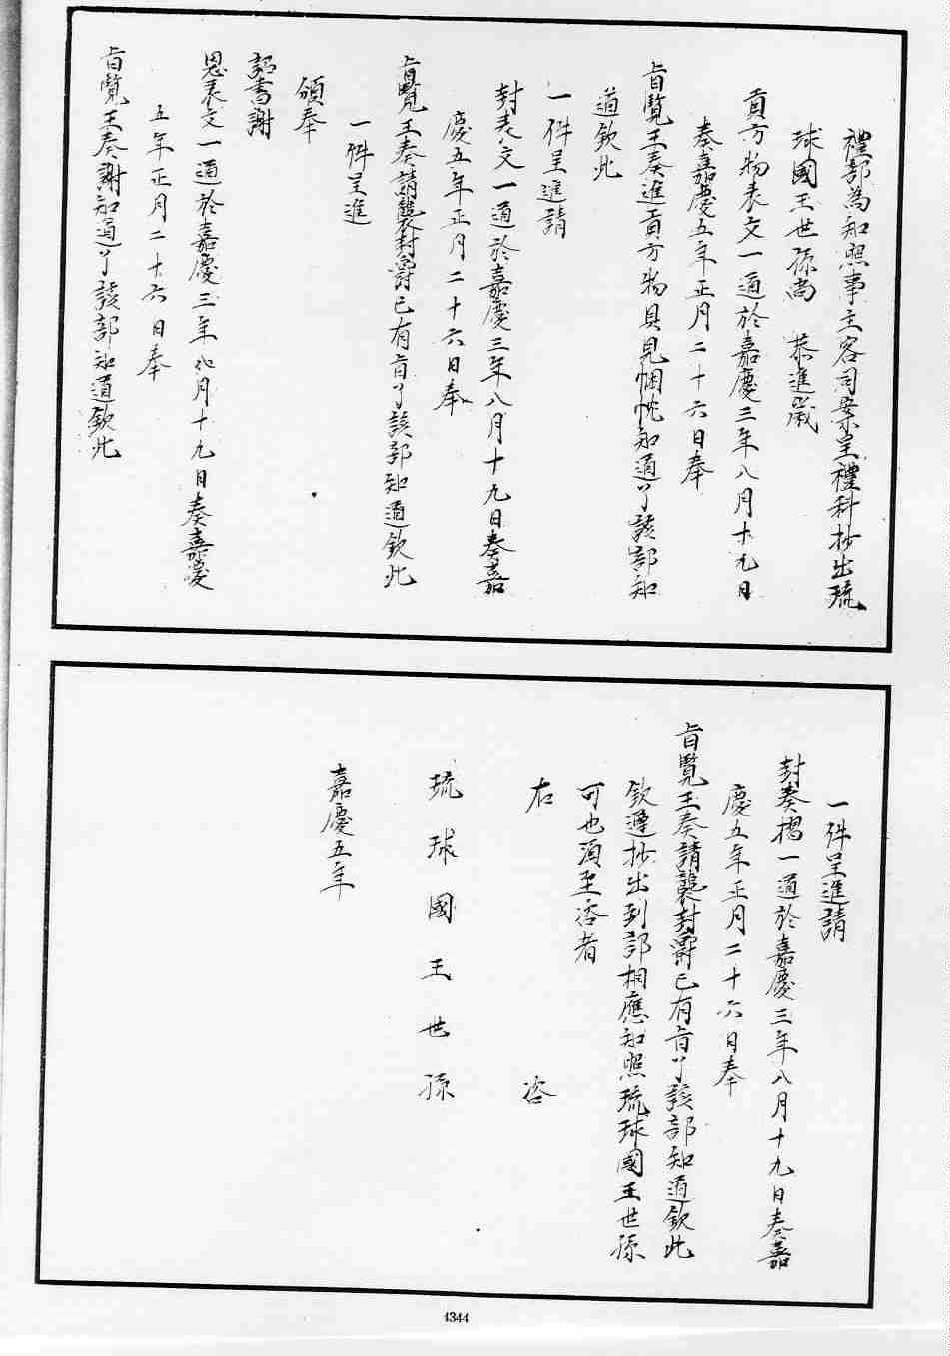 禮部為知照事主客司案呈禮科抄出琉
球國王世孫尚　恭進歲
貢方物表文一通於嘉慶三年八月十九日
奏嘉慶五年正月二十六日奉
旨覽王奏進貢方物具見悃忱知道了該部知
道欽此
一件呈進請
封表文一通於嘉慶三年八月十九日奏嘉
慶五年正月二十六日奉
旨覽王奏請襲封爵已有旨了該部知道欽此
一件呈進
頒奉
詔書謝
恩表文一通於嘉慶三年八月十九日奏嘉慶
五年正月二十六日奉
旨覽王奏謝知道了該部知道欽此
一件呈進請
封奏摺一通於嘉慶三年八月十九日奏嘉
慶五年正月二十六日奉
旨覽王奏請襲封爵已有旨了該部知道欽此
欽遵抄出到部相應知照琉球國王世孫
可也須至咨者
右　咨
琉球國王世孫
嘉慶五年
4344